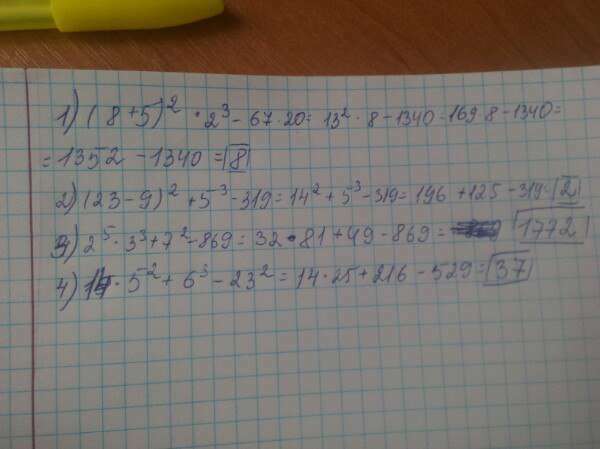 1) (8+5)² · 2³ - 67·20 = 13² · 8 - 1340 - 169·8 - 1340 =
= 1352 - 1340 = 8
2) (23-9)² + 5³ - 319 = 14² + 5³ - 319 = 196 + 125 - 319 = 2
3) 2⁵ · 3³ + 7² - 869 = 32 · 81 + 49 - 869 = 1772
4) 14 · 5² + 6³ - 23² = 14 · 25 + 216 - 529 = 37